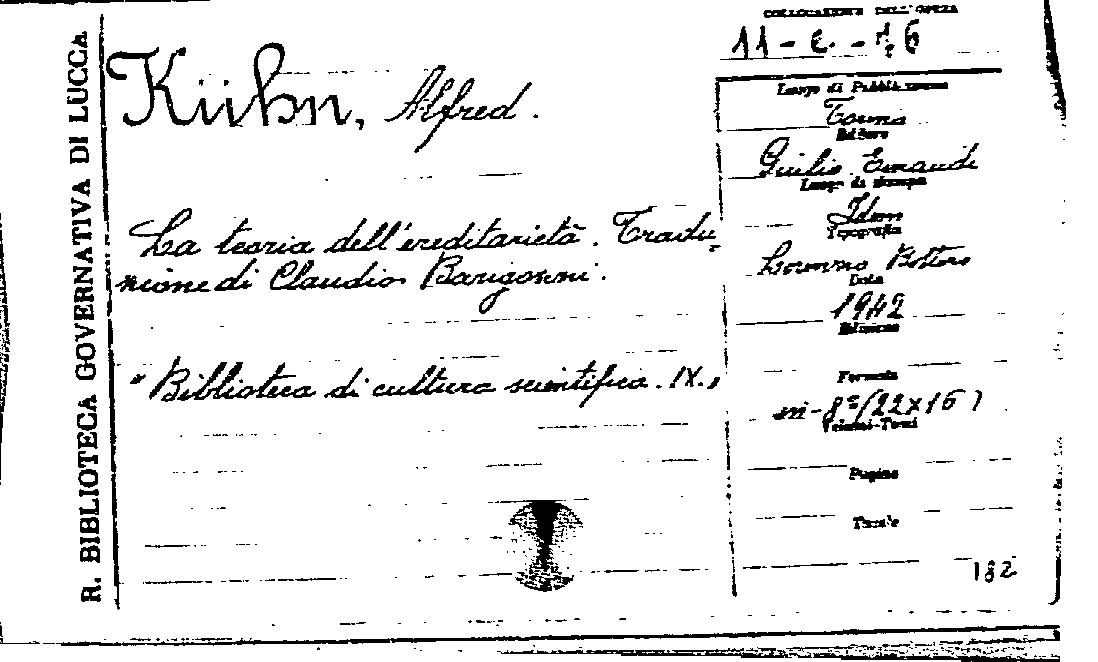 R. BIBLIOTECA GOVERNATIVA DI LUCCA
Kühn, Alfred.
La teoria dell'ereditarietà. Tradu=
zione di Claudio Barigozzi.
"Biblioteca di cultura scientifica. IX.,,
COLLOCAZIONE DELL'OPERA
11-e.-16
Luogo di Pubblicazione
Torino
Editore
Giulio Einaudi
Luogo di stampa
Idem
Tipografia
Bottero
Data
1942
Edizione
Formato
in-8° (22x16)
Volumi-Tomi
Pagine
Tavole
182